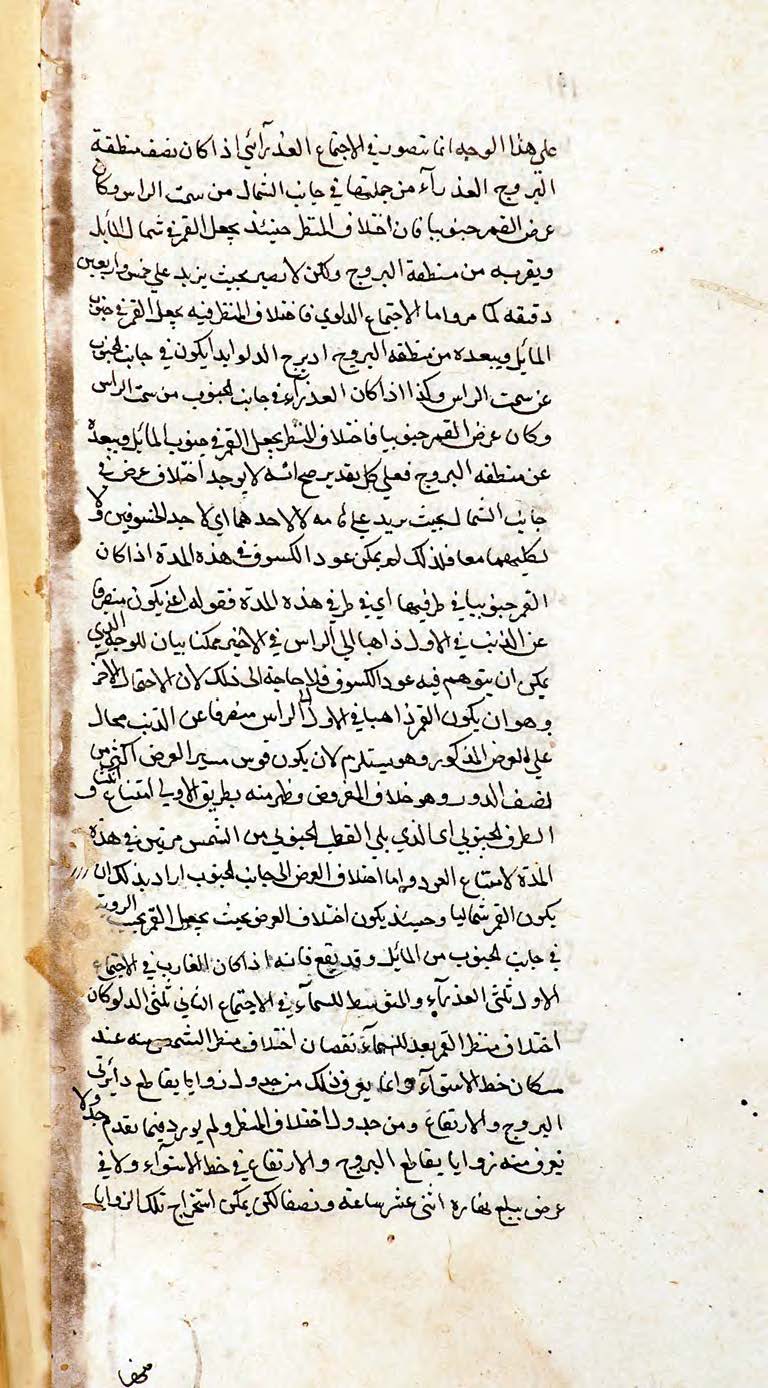 على هذا الوجه انما يتصور في الاجتماع العذرآئي اذا كان نصف منطقة
البروج العذرآء من جملتها في جانب الشمال من سمت الراس وكان
عرض القمر جنوبيا فان اختلاف المنظر حينئذ يجعل القمر في شمال المايل
ويقربه من منطقة البروج ولكن لا يصير بحيث يزيد على خمس واربعين
دقيقه كما مر واما الاجتماع الدلوي فاختلاف المنظر فيه يجعل القمر في جنوب
المايل ويبعده من منطقه البروج اذ برج الدلو ابدا يكون في جانب الجنوب
عن سمت الراس وكذا اذا كان العذرآء في جانب الجنوب من سمت الراس
وكان عرض القمر جنوبيا فاختلاف المنظر يجعل القمر في جنوب المايل ويبعده
عن منطقه البروج فعلى كل تقدير صح انه لا يوجد اختلاف عرض في
جانب الشمال بحيث يزيد على مه لا لاحدهما اي لاحد الخسوفين ولا
لكليهما معا فلذلك لم يمكن عود الكسوف في هذه المدة اذا كان
القمر جنوبيا في طرفيها اي في طرفي هذه المدة فقوله اعني يكون منصرفا
عن الذنب في الاول ذاهبا الى الراس في الاخير ممكنا بيان للوجه الذي
يمكن ان يتوهم فيه عود الكسوف فلا حاجة الى ذلك لان الاحتمال الآخر
وهو ان يكون القمر ذاهبا في الاول الى الراس منصرفا عن الذنب محال
على العرض المذكور وهو يستلزم لان يكون قوس مسير العرض اكثر من
نصف الدور وهو خلاف المفروض وظهر منه بطريق الاولى امتناع
الطرف الجنوبي اي الذي يلي القطب الجنوبي من الشمس مرتين في هذه
المدة لامتناع العود واما اختلاف العرض الى جانب الجنوب اراد بذلك ان
يكون القمر شماليا وحينئذ يكون اختلاف العرض بحيث يجعل القمر بحسب الروية
في جانب الجنوب من المايل وقد يقع فانه اذا كان الغارب في الاجتماع
الاول ثلثي العذرآء والمتوسط للسمآء في الاجتماع الثاني ثلثي الدلو كان
اختلاف منظر القمر بعد نقصان اختلاف منظر الشمس منه عند
سكان خط الاستوآء وانما يعرف ذلك من جدول زوايا تقاطع دايرتي
البروج والارتفاع ومن جدول اختلاف المنظر ولم يورد فيما تقدم جدولا
يعرف منه زوايا تقاطع البروج والارتفاع في خط الاستوآء ولا في
عرض يبلغ نهاره اثنى عشر ساعة ونصفا لكن يمكن استخراج تلك الزوايا